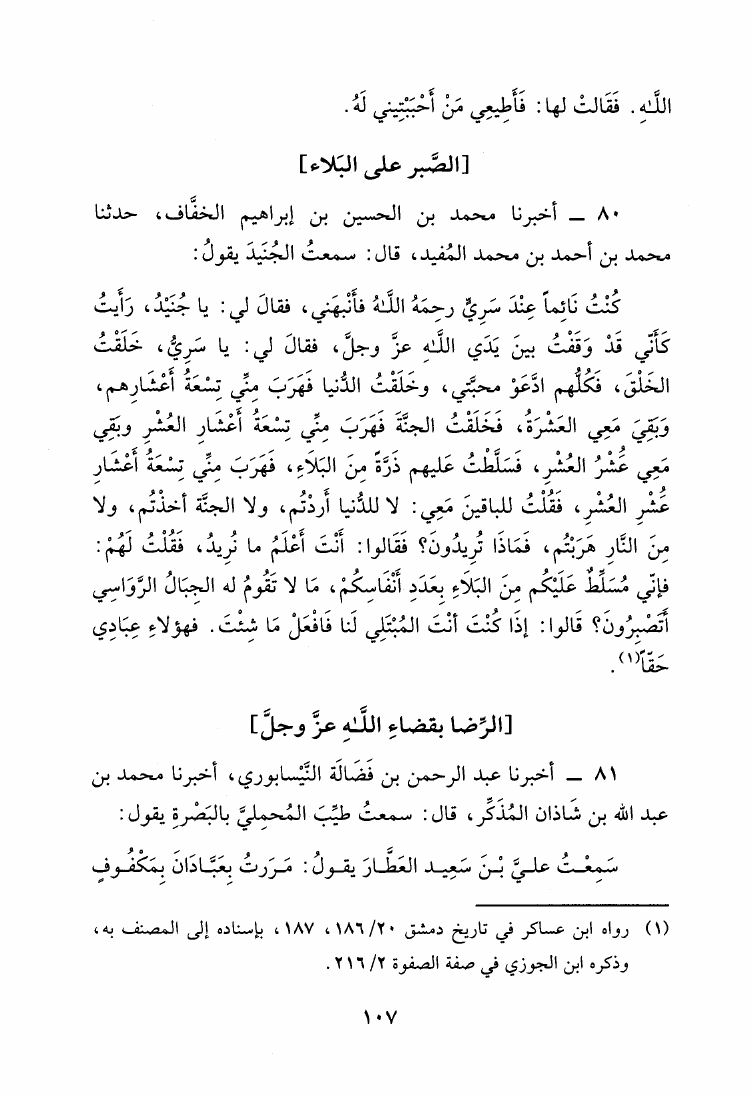 اللَّـهِ. فَقَالتْ لها: فَأَطِيعِي مَنْ أَحْبَبْتِيني لَهُ.
[الصَّبر على البَلاء]
٨٠ ــ أخبرنا محمد بن الحسين بن إبراهيم الخفَّاف، حدثنا
محمد بن أحمد بن محمد المُفيد، قال: سمعتُ الجُنَيدَ يقولُ:
كُنْتُ نَائِماً عِنْدَ سَرِيٍّ رحِمَهُ اللَّـهُ فأَنْبهَني، فقالَ لي: يا جُنَيْدُ، رَأَيتُ
كَأَنّي قَدْ وَقَفْتُ بينَ يَدَي اللَّـهِ عزَّ وجلَّ، فقالَ لي: يا سَرِيُّ، خَلَقْتُ
الخَلْقَ، فَكُلُّهم ادَّعَوْ محبَّتي، وخَلَقْتُ الدُّنيا فَهَرَبَ مِنِّي تِسْعَةُ أَعْشارِهم،
وَبَقِيَ مَعِي العَشْرَةُ، فَخَلَقْتُ الجنَّةَ فَهَرَبَ مِنِّي تِسْعَةُ أَعْشَارِ العُشْرِ وبَقِي
مَعِي عُشْرُ العُشْرِ، فَسَلَّطْتُ عليهم ذَرَّةً مِنَ البَلَاءِ، فَهَرَبَ مِنِّي تِسْعَةُ أَعْشَارِ
عُشْرِ العُشْرِ، فَقُلْتُ للباقينَ مَعِي: لا للدُّنيا أَرَدْتُم، ولا الجنَّة أخذْتُم، ولا
مِنَ النَّارِ هَرَبْتُم، فَمَاذَا تُرِيدُونَ؟ فقَالوا: أَنْتَ أَعْلَمُ ما نُرِيدُ، فقُلْتُ لَهُمْ:
فإنّي مُسَلِّطٌ عَلَيْكُم مِنَ البَلَاءِ بِعَدَدِ أَنْفَاسِكُمْ، مَا لا تَقُومُ له الجِبَالُ الرَّوَاسِي
أَتَصْبِرُونَ؟ قَالوا: إذَا كُنْتَ أنْتَ المُبْتَلِي لَنا فَافْعَلْ مَا شِئْتَ. فهؤلاءِ عِبَادِي
حَقّاً(١).
[الرِّضا بقضاءِ اللَّـهِ عزَّ وجلَّ]
٨١ ــ أخبرنا عبد الرحمن بن فَضَالَة النَّيْسابوري، أخبرنا محمد بن
عبد الله بن شَاذان المُذَكِّر، قال: سمعتُ طيِّبَ المُحمليَّ بالبَصْرةِ يقول:
سَمِعْـتُ علـيَّ بْـنَ سَعِيـد العَطَّـارَ يقـولُ: مَـرَرتُ بِعَبَّـادَانَ بِمَكْفُـوفٍ
(١) رواه ابن عساكر في تاريخ دمشق ٢٠/ ١٨٦، ١٨٧، بإسناده إلى المصنف به،
وذكره ابن الجوزي في صفة الصفوة ٢/ ٢١٦.
١٠٧